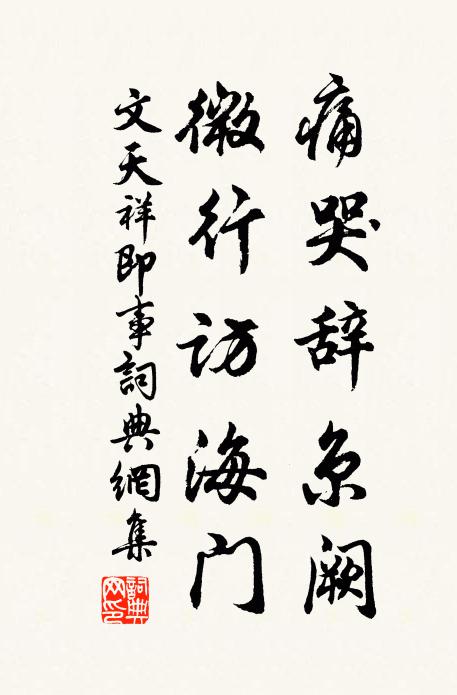 痛哭辞京阙
微行访海门
文天祥即事詞典網集
詞典网印